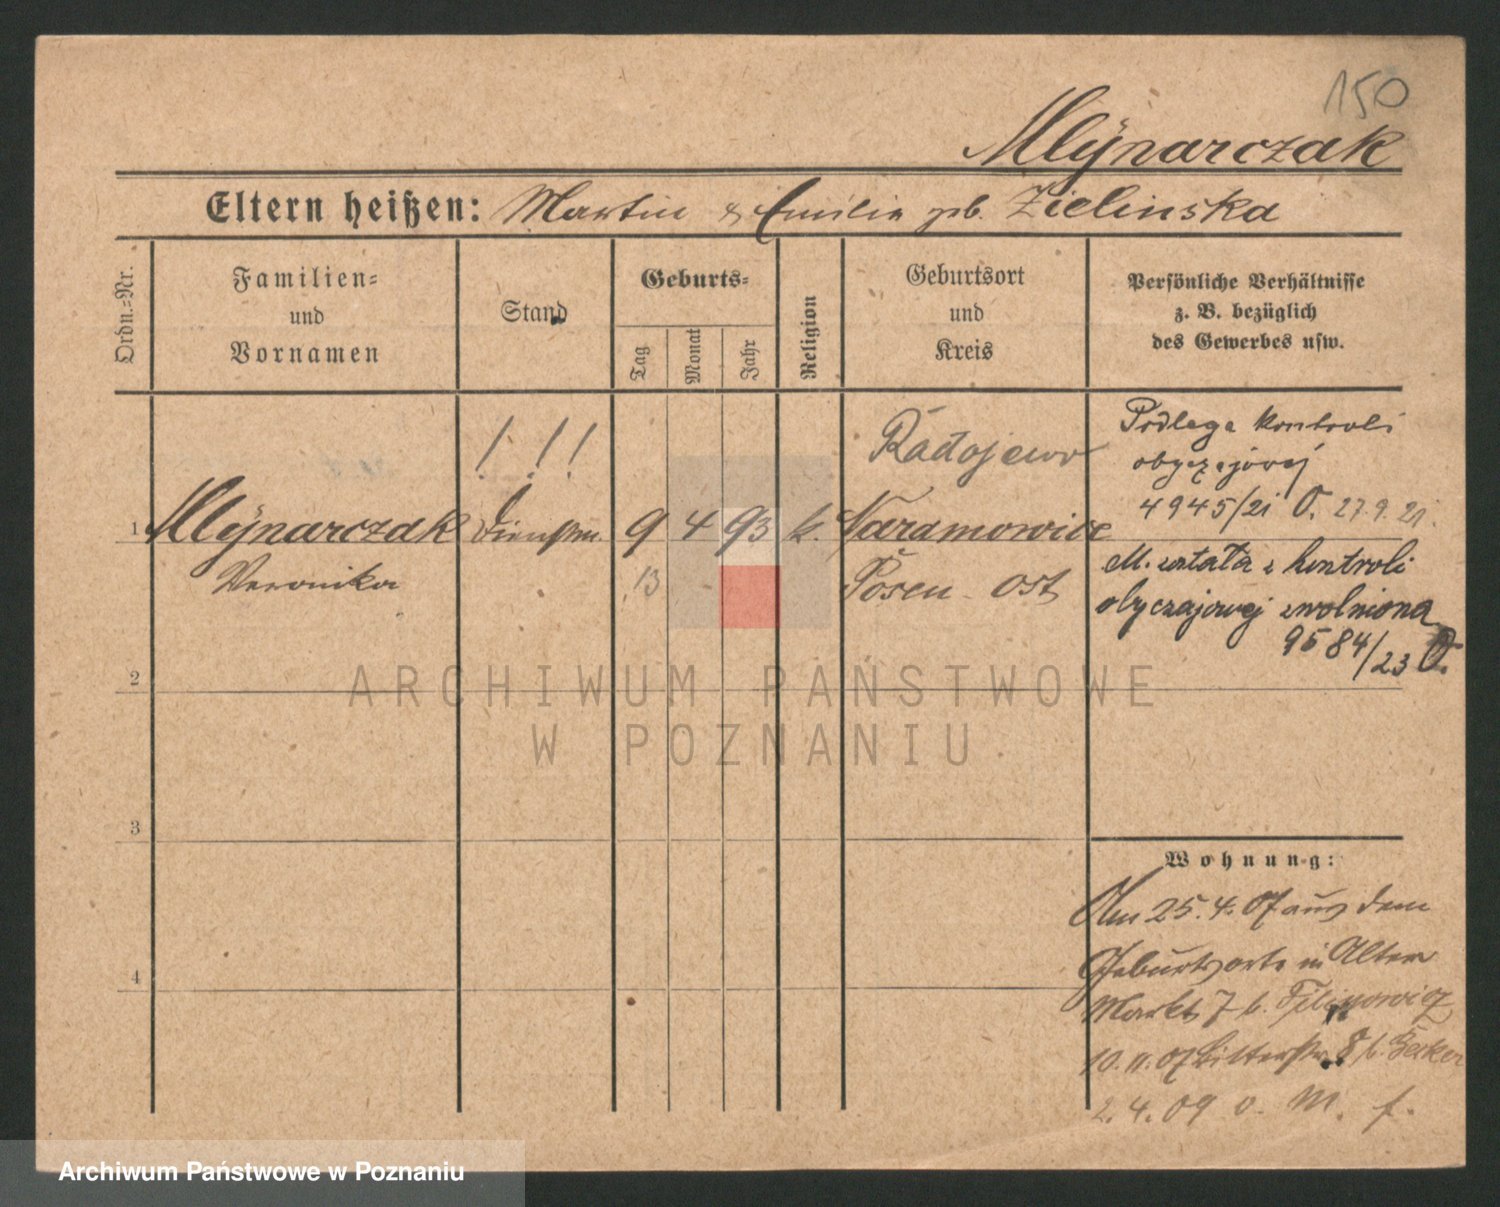 150
Mlynarczak
Eltern heißen: Martin & Emilie geb. Zielinska
Ordn.-Nr.
Familien-
und
Vornamen
Stand
Geburts-
Tag
Monat
Jahr
Religion
Geburtsort
und
Kreis
Persönliche Verhältnisse
z. B. bezüglich
des Gewerbes usw.
! ! !
Radojewo
Podlega kontroli
obyczajowej
4945/21 O. 27.9.21.
1 Mlynarczak Dienstm. 9 4 93 k. Naramowice
Veronika 13 Posen-Ost
M. została z kontroli
obyczajowej zwolniona
9584/23 O.
2
3
4
Wohnung:
Am 25.4.07 aus dem
Geburtsorte in Alter
Markt 7 b. Filipowicz
10.11.07 Ritterstr. 8 b. Becker
2.4.09 v. M. f.
ARCHIWUM PAŃSTWOWE
W POZNANIU
Archiwum Państwowe w Poznaniu